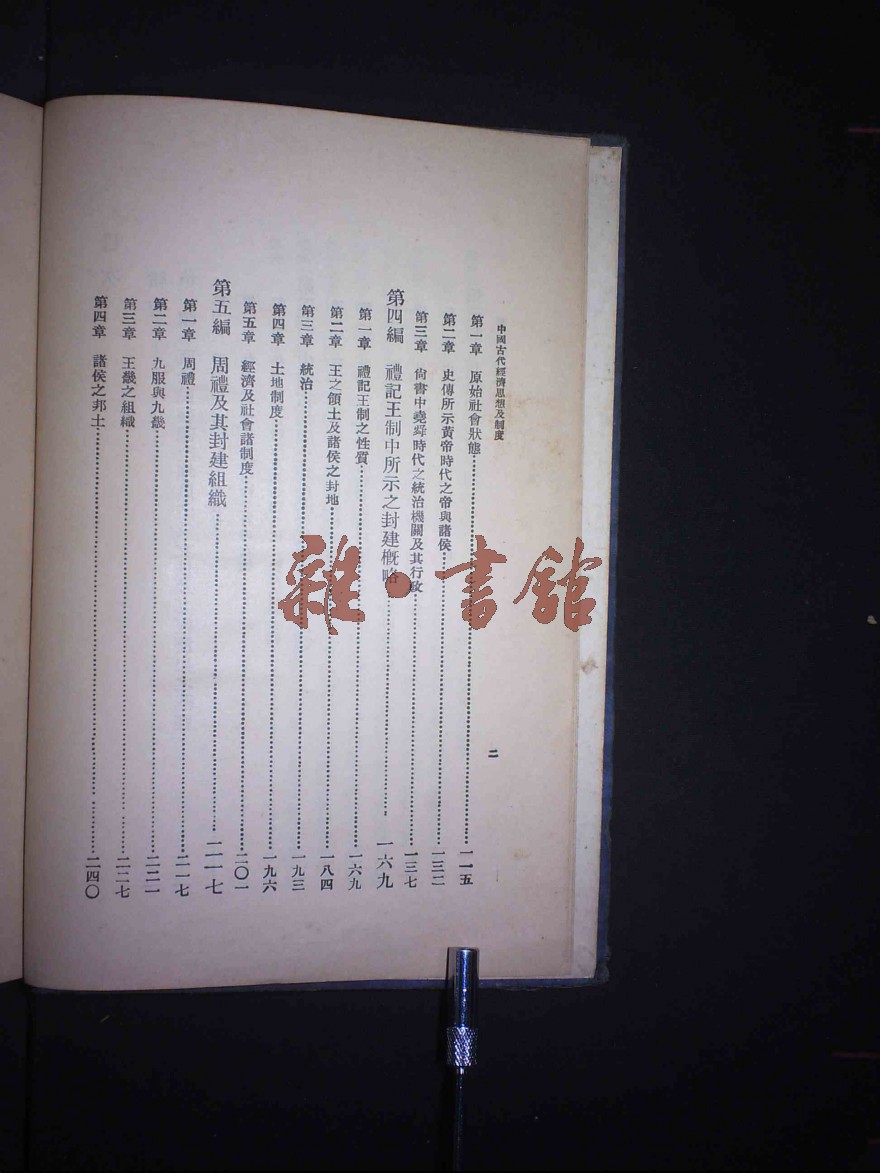 中國古代經濟思想及制度
二
第一章 原始社會狀態……一一五
第二章 史傳所示黃帝時代之帝與諸侯……一三二
第三章 尙書中堯舜時代之統治機關及其行政……一三七
第四編 禮記王制中所示之封建概略……一六九
第一章 禮記王制之性質……一六九
第二章 王之領土及諸侯之封地……一八四
第三章 統治……一九三
第四章 土地制度……一九六
第五章 經濟及社會諸制度……二〇一
第五編 周禮及其封建組織……二一七
第一章 周禮……二一七
第二章 九服與九畿……二二一
第三章 王畿之組織……二二七
第四章 諸侯之邦土……二四〇
雜·書館